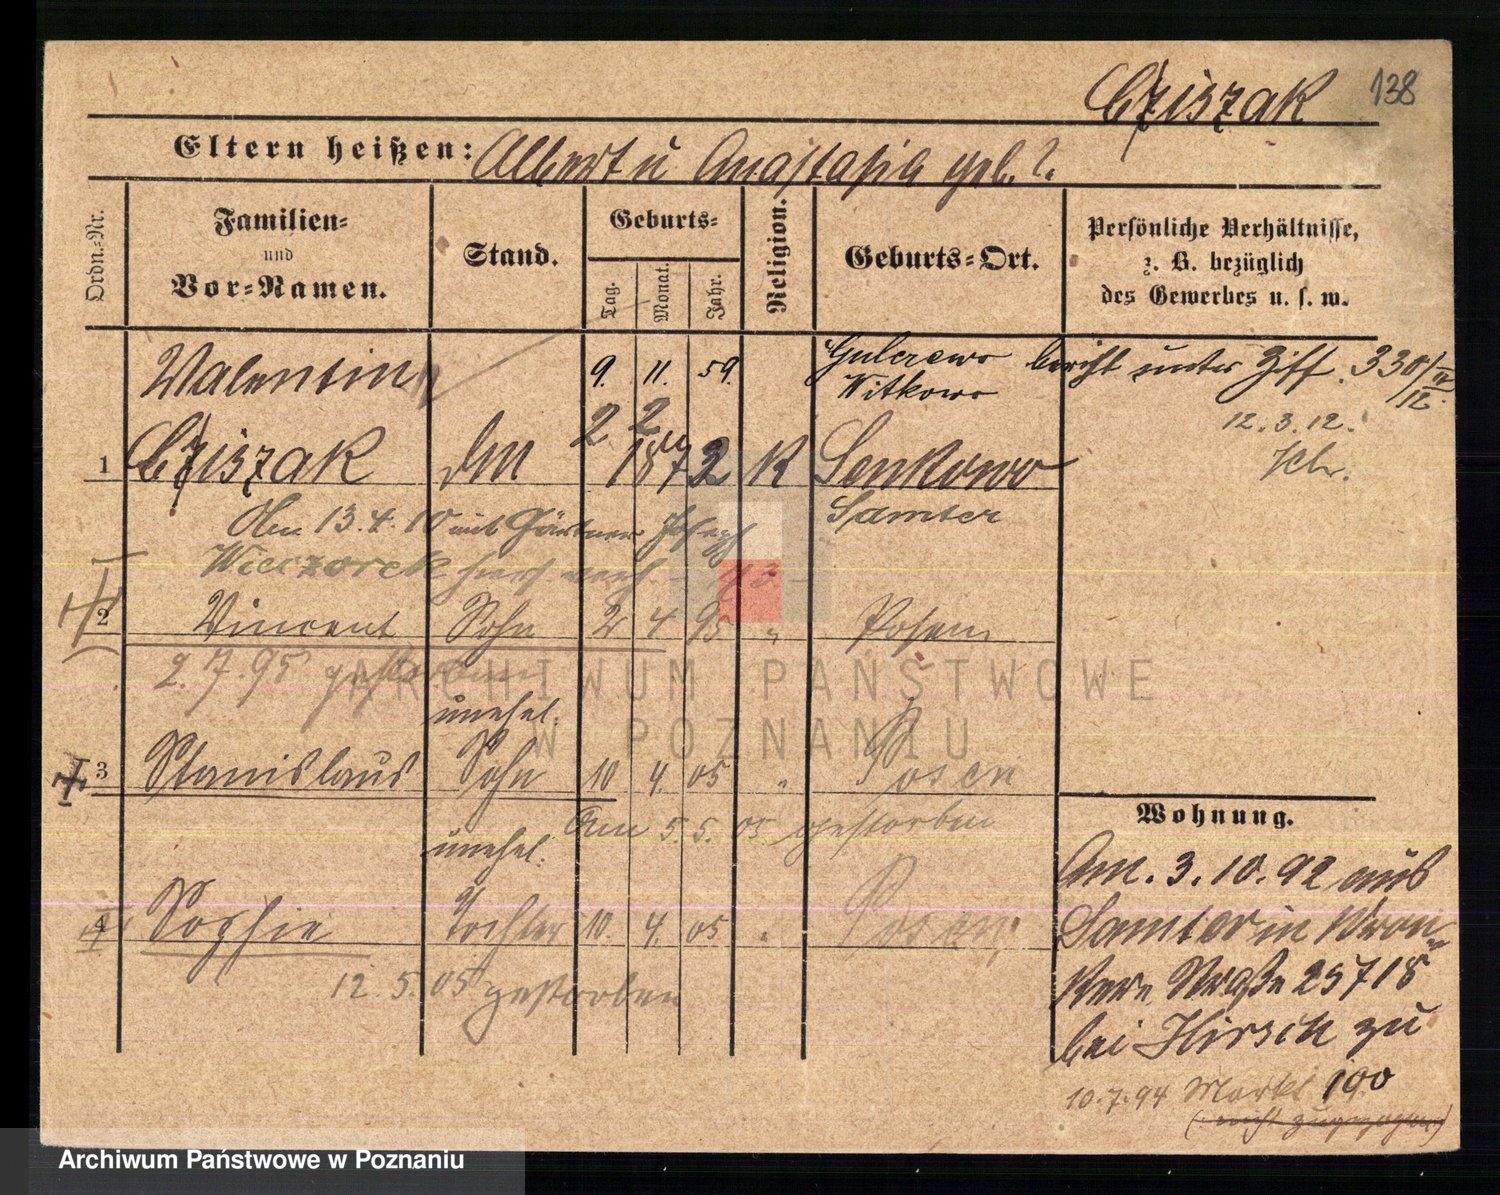 Cziszak 138
Eltern heißen: Albert u Anastasia geb. ?.
Ordn.-Nr.
Familien-
und
Vor-Namen.
Stand.
Geburts-
Tag.
Monat.
Jahr.
Religion.
Geburts-Ort.
Persönliche Verhältnisse,
z. B. bezüglich
des Gewerbes u. s. w.
Valentin 9. 11. 59. unter Ziff. 330/
Witkowo
12. 3. 12.
2 2
1 Cziszak 1872 K Senkowo
Samter
Am 13.4.10 mit Gärtner Joseph
Wieczorek
2 Vincent Sohn 2 4 95 " Posen
2.7.95 gestorben
unehel.
3 Stanislaus Sohn 10 4. 05 " Posen
Am 5.5.05 gestorben
unehel.
4 Sophie Tochter 10. 4. 05 " Posen
12.5.05 gestorben
Wohnung.
Am. 3.10.92 aus
Samter in Kron-
Straße 25718
bei Hirsch zu
10.7.94 Markt 100
ARCHIWUM PAŃSTWOWE
W POZNANIU
Archiwum Państwowe w Poznaniu